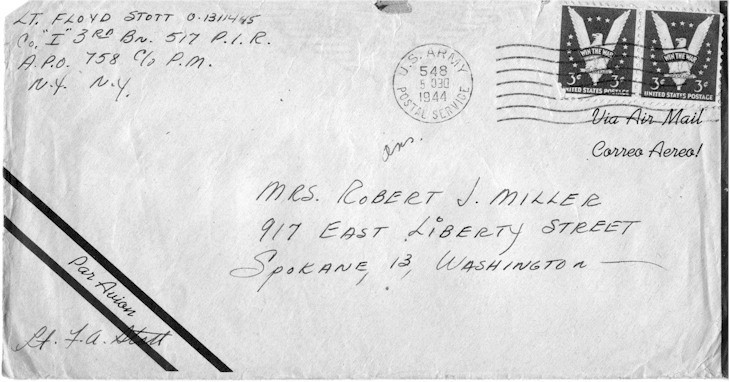 LT. FLOYD STOTT O-1311445
Co. "I" 3RD BN. 517 P.I.R.
A.P.O. 758 C/o P.M.
N.Y. N.Y.
U.S. ARMY
548
5 030
1944
POSTAL SERVICE
WIN THE WAR
3¢ 3¢
UNITED STATES POSTAGE
WIN THE WAR
3¢ 3¢
UNITED STATES POSTAGE
Via Air Mail
Correo Aereo!
ans.
MRS. ROBERT J. MILLER
917 EAST LIBERTY STREET
SPOKANE, 13, WASHINGTON —
Par Avion
Lt. F.A. Stott